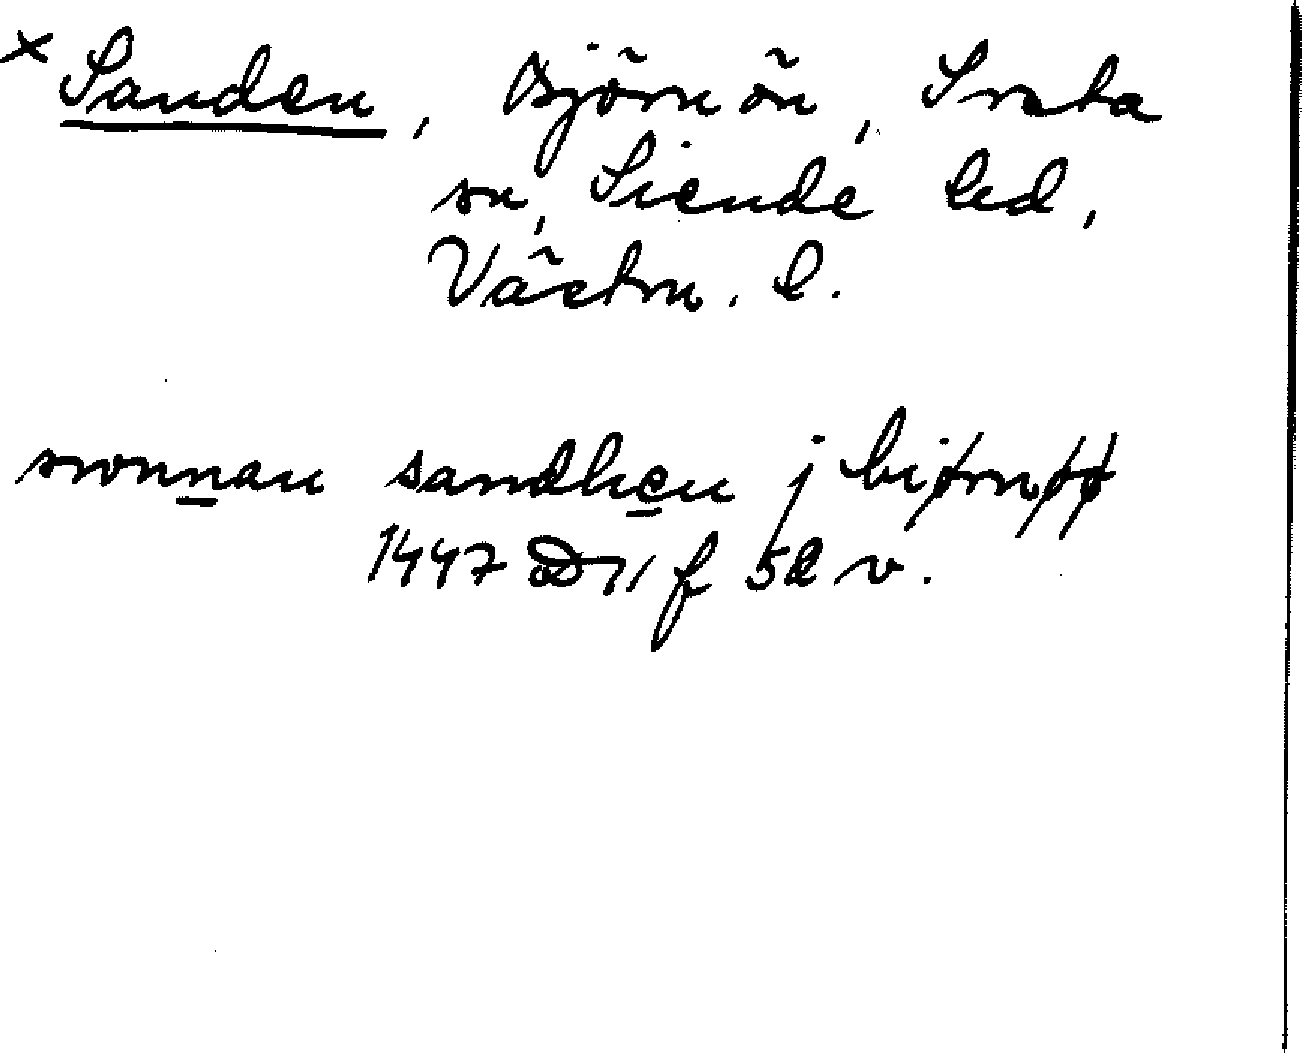 × Sanden, Björnön, Irsta
sn, Siende hd,
Västm. l.
swnnan sandhen j biørnøø
1447 D 11 f 52 v.